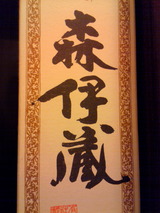 森
伊
蔵